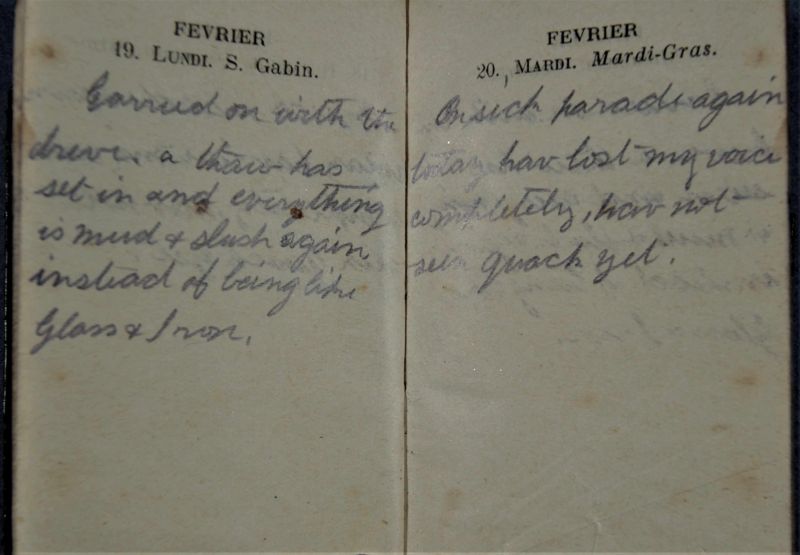 FEVRIER
19. LUNDI. S. Gabin.
Carried on with the
drive. a thaw has
set in and everything
is mud & slush again
instead of being like
Glass & Iron.
FEVRIER
20. MARDI. Mardi-Gras.
On sick parade again
today hav lost my voice
completely, hav not
seen quack yet.